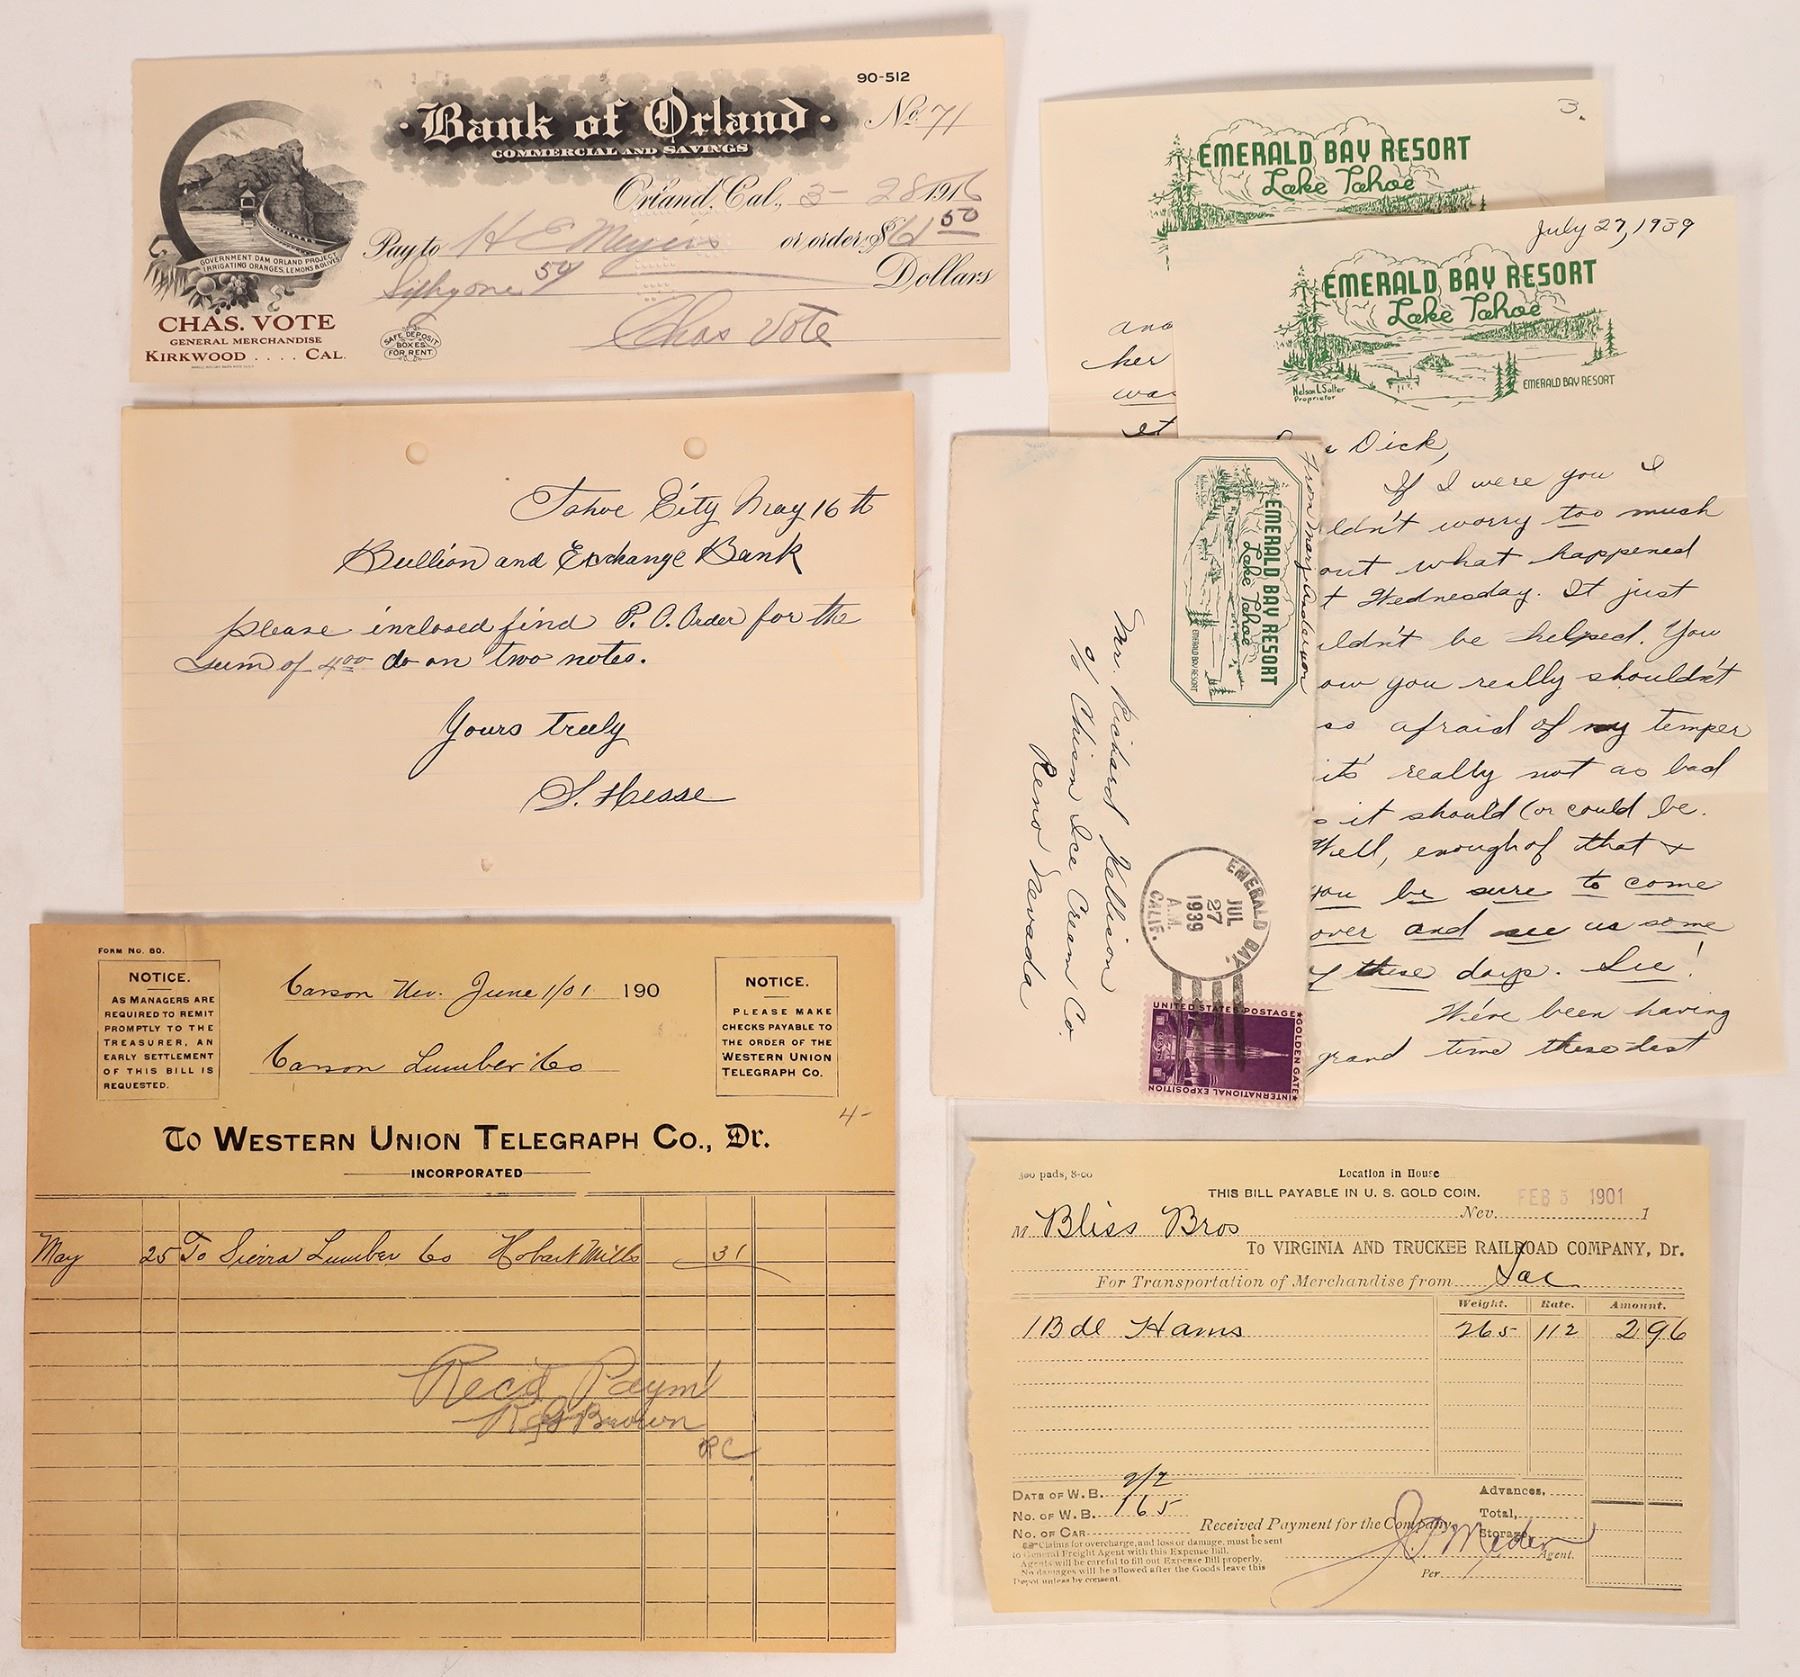 90-512
Bank of Orland
COMMERCIAL AND SAVINGS
No. 71
Orland, Cal., 3-28 1916
Pay to H E Meyers or order $61 50
Sixty one 50 Dollars
Chas Vote
GOVERNMENT DAM ORLAND PROJECT
IRRIGATING ORANGES, LEMONS & OLIVES
CHAS. VOTE
GENERAL MERCHANDISE
KIRKWOOD .... CAL.
SAFE DEPOSIT
BOXES
FOR RENT
Tahoe City May 16th
Bullion and Exchange Bank
please inclosed find P. O. Order for the
sum of 4 00 do on two notes.
Yours truly
S. Hesse
FORM NO. 60.
NOTICE.
AS MANAGERS ARE
REQUIRED TO REMIT
PROMPTLY TO THE
TREASURER, AN
EARLY SETTLEMENT
OF THIS BILL IS
REQUESTED.
Carson Nev. June 1/01 190
Carson Lumber Co
NOTICE.
PLEASE MAKE
CHECKS PAYABLE TO
THE ORDER OF THE
WESTERN UNION
TELEGRAPH CO.
4-
To WESTERN UNION TELEGRAPH CO., Dr.
INCORPORATED
May 25 To Sierra Lumber Co Hobart Mills 31
Rec'd Paym't
Brown
RC
3.
EMERALD BAY RESORT
Lake Tahoe
and
her
was
et
July 27, 1939
EMERALD BAY RESORT
Lake Tahoe
Nelson L Salter
Proprietor
EMERALD BAY RESORT
Dick,
If I were you I
ldn't worry too much
out what happened
t Wednesday. It just
uldn't be helped. You
ow you really shouldn't
so afraid of my temper
it's really not as bad
s it should (or could be.
Well, enough of that &
you be sure to come
over and see us some
of these days. See!
We've been having
grand time these last
From Mary Anderson
EMERALD BAY RESORT
Lake Tahoe
EMERALD BAY RESORT
Mr. Richard Kellison
% Chism Ice Cream Co.
Reno Nevada
EMERALD BAY.
JUL
27
A.M.
1939
CALIF.
UNITED STATES POSTAGE
GOLDEN GATE
INTERNATIONAL EXPOSITION
300 pads, 8-00
Location in House
THIS BILL PAYABLE IN U. S. GOLD COIN.
FEB 5 1901
Nev. 1
M Bliss Bros
To VIRGINIA AND TRUCKEE RAILROAD COMPANY, Dr.
For Transportation of Merchandise from Sac
Weight. Rate. Amount.
1 Bdl Hams 265 112 2 96
DATE OF W.B. 2/2
NO. OF W.B. 165
NO. OF CAR
Advances,
Total,
Storage,
Received Payment for the Company,
Agent.
Per
Claims for overcharge, and loss or damage, must be sent
to General Freight Agent with this Expense Bill.
Agents will be careful to fill out Expense Bill properly.
No damages will be allowed after the Goods leave this
Depot unless by consent.